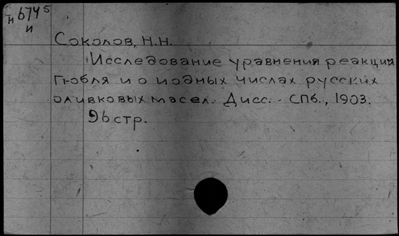 н б745
и
Соколов, Н.Н.
Исследование уравнения реакции
Гюбля и о иодных числах русских
оливковых масел. Дисс. - СПб., 1903.
96 стр.